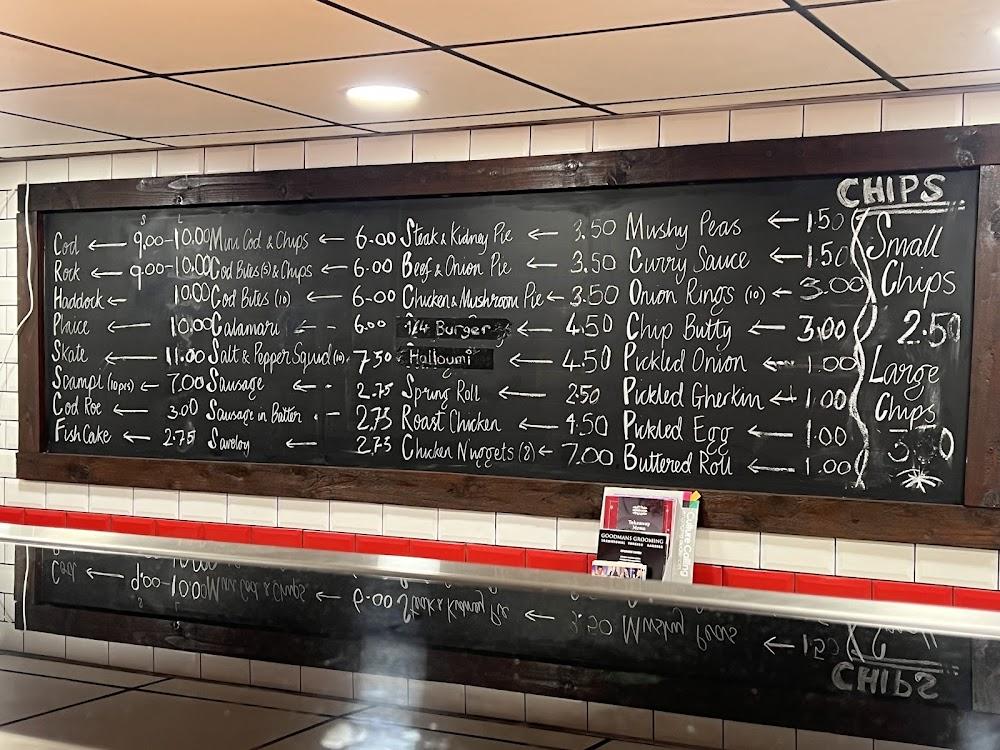 S L
Cod ← 9.00-10.00
Rock ← 9.00-10.00
Haddock ← 10.00
Plaice ← 10.00
Skate ← 11.00
Scampi (10pcs) ← 7.00
Cod Roe ← 3.00
Fish Cake ← 2.75
Mini Cod & Chips ← 6.00
Cod Bites (5) & Chips ← 6.00
Cod Bites (10) ← 6.00
Calamari ← 6.00
Salt & Pepper Squid (10) 7.50
Sausage ← 2.75
Sausage in Batter ← 2.75
Saveloy ← 2.75
Steak & Kidney Pie ← 3.50
Beef & Onion Pie ← 3.50
Chicken & Mushroom Pie ← 3.50
1/4 Burger ← 4.50
Halloumi ← 4.50
Spring Roll ← 2.50
Roast Chicken ← 4.50
Chicken Nuggets (8) ← 7.00
Mushy Peas ← 1.50
Curry Sauce ← 1.50
Onion Rings (10) ← 3.00
Chip Butty ← 3.00
Pickled Onion ← 1.00
Pickled Gherkin ← 1.00
Pickled Egg ← 1.00
Buttered Roll ← 1.00
CHIPS
Small
Chips
2.50
Large
Chips
Takeaway
Menu
GOODMANS GROOMING